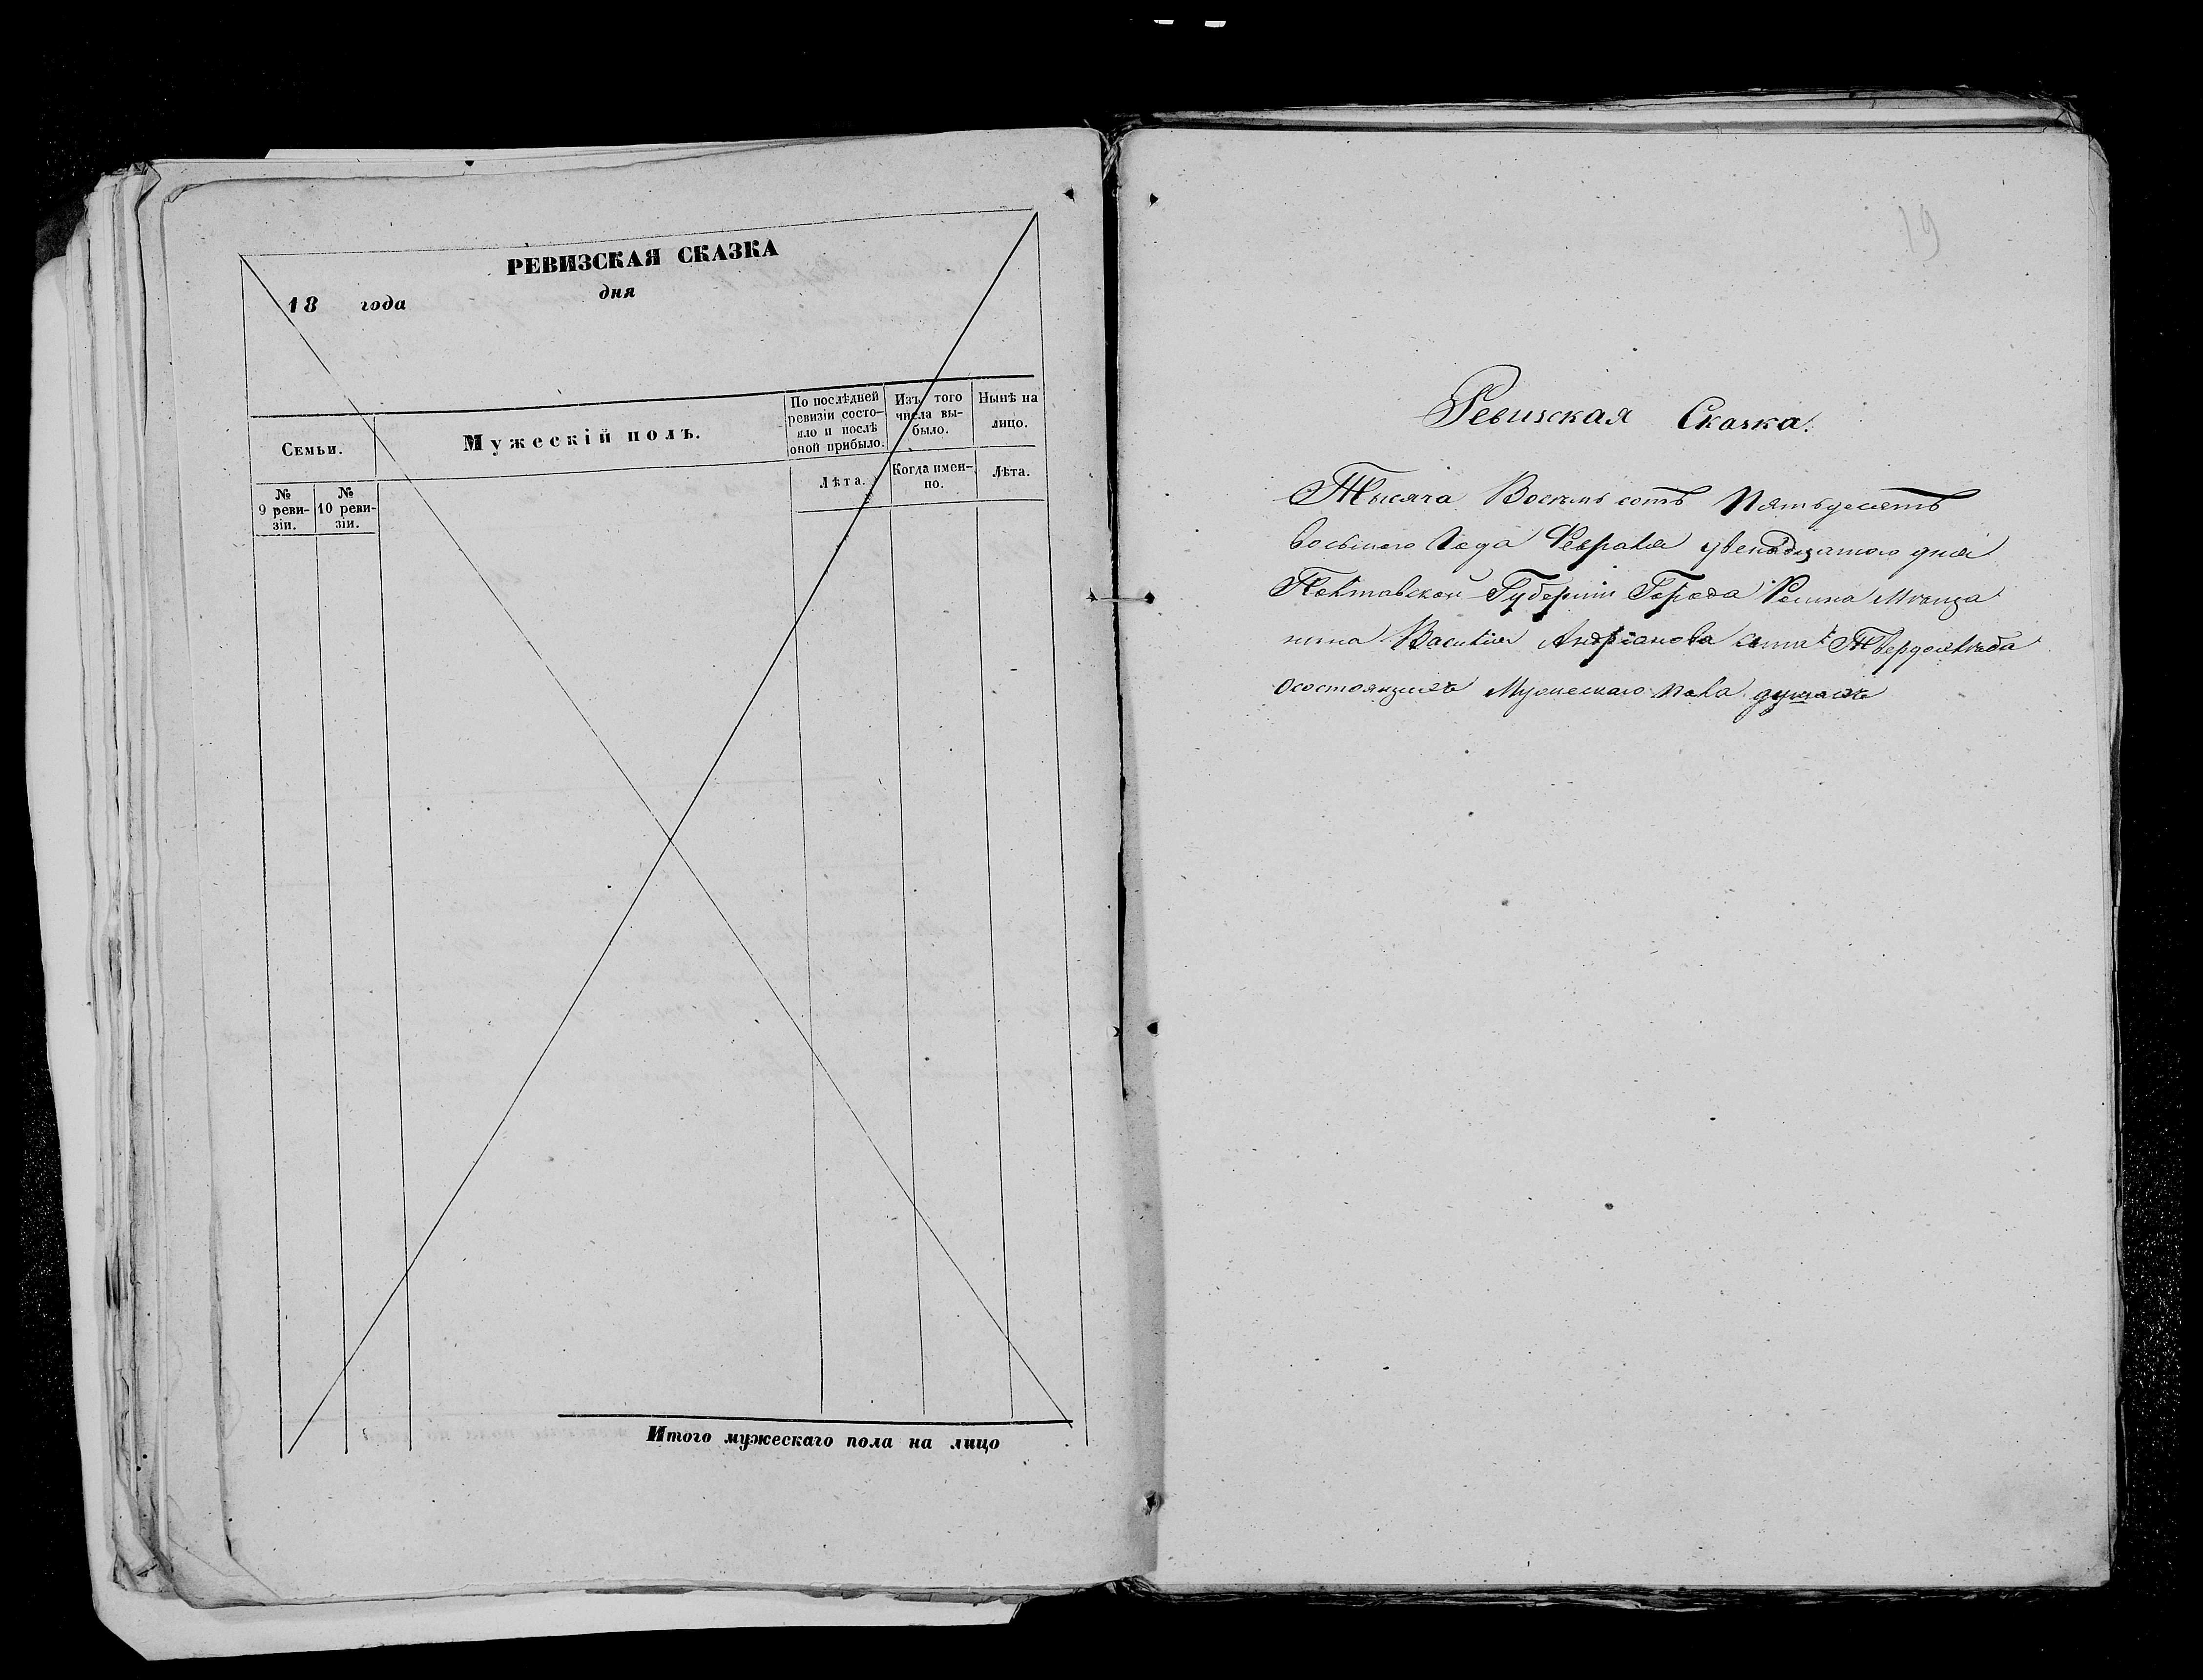 РЕВИЗСКАЯ СКАЗКА
18 года дня
Семьи.
№ 9 реви-зіи.
№ 10 реви-зіи.
Мужескій полъ.
По послѣдней
ревизіи состо-
яло и послѣ
оной прибыло.
Лѣта.
Изъ того
числа вы-
было.
Когда имен-
но.
Нынѣ на
лицо.
Лѣта.
Итого мужескаго пола на лицо
19
Ревизская Сказка.
Тысяча Восемь сотъ Пятьдесятъ
восьмого Года Февраля двенадцатого дня
Полтавской Губерніи Города Ромна Мѣщанина
Василія Андріанова сына Твердохлѣба
о состоящихъ Мужескаго пола душахъ